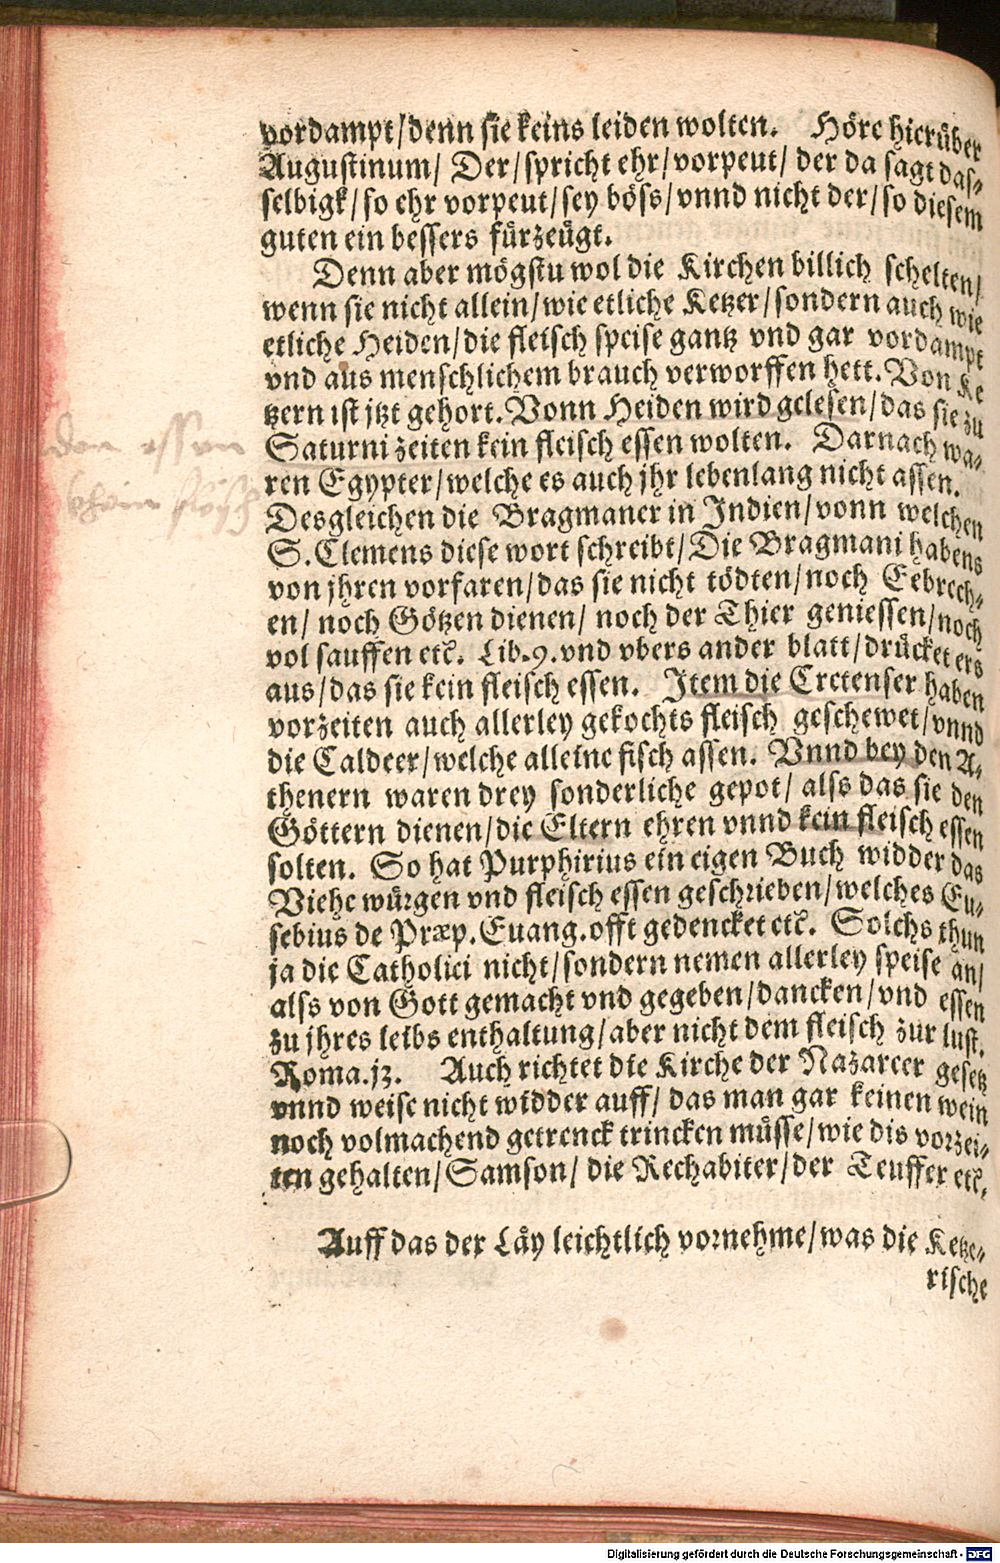 vordampt/denn sie keins leiden wolten. Höre hierüber
Augustinum/ Der/spricht ehr/vorpeut/ der da sagt das-
selbigk/so ehr vorpeut/sey böss/vnnd nicht der/so diesem
guten ein bessers fürzeügt.
Denn aber mögstu wol die Kirchen billich schelten/
wenn sie nicht allein/wie etliche Ketzer/sondern auch wie
etliche Heiden/die fleisch speise gantz vnd gar vordampt
vnd aus menschlichem brauch verworffen hett. Von Ke
tzern ist jtzt gehort. Vonn Heiden wird gelesen/das sie zu
Saturni zeiten kein fleisch essen wolten. Darnach wa-
ren Egypter/welche es auch jhr lebenlang nicht assen.
Desgleichen die Bragmaner in Indien/vonn welchen
S. Clemens diese wort schreibt/Die Bragmani habens
von jhren vorfaren/das sie nicht tödten/noch Eebrech-
en/ noch Götzen dienen/ noch der Thier geniessen/noch
vol sauffen etc. Lib.9.vnd vbers ander blatt/drücket ers
aus/das sie kein fleisch essen. Item die Cretenser haben
vorzeiten auch allerley gekochts fleisch geschewet/vnnd
die Caldeer/welche alleine fisch assen. Vnnd bey den A-
thenern waren drey sonderliche gepot/ alss das sie den
Göttern dienen/die Eltern ehren vnnd kein fleisch essen
solten. So hat Purphirius ein eigen Buch widder das
Viehe würgen vnd fleisch essen geschrieben/welches Eu-
sebius de Præp. Euang. offt gedencket etc. Solchs thun
ja die Catholici nicht/sondern nemen allerley speise an/
alss von Gott gemacht vnd gegeben/dancken/vnd essen
zu jhres leibs enthaltung/aber nicht dem fleisch zur lust.
Roma.jz. Auch richtet die Kirche der Nazareer gesetz
vnnd weise nicht widder auff/ das man gar keinen wein
noch volmachend getrenck trincken müsse/wie dis vorzei-
ten gehalten/Samson/ die Rechabiter/der Teuffer etc.
Auff das der Läy leichtlich vornehme/was die Ketze-
rische
den essen
khein fleysch
Digitalisierung gefördert durch die Deutsche Forschungsgemeinschaft - DFG